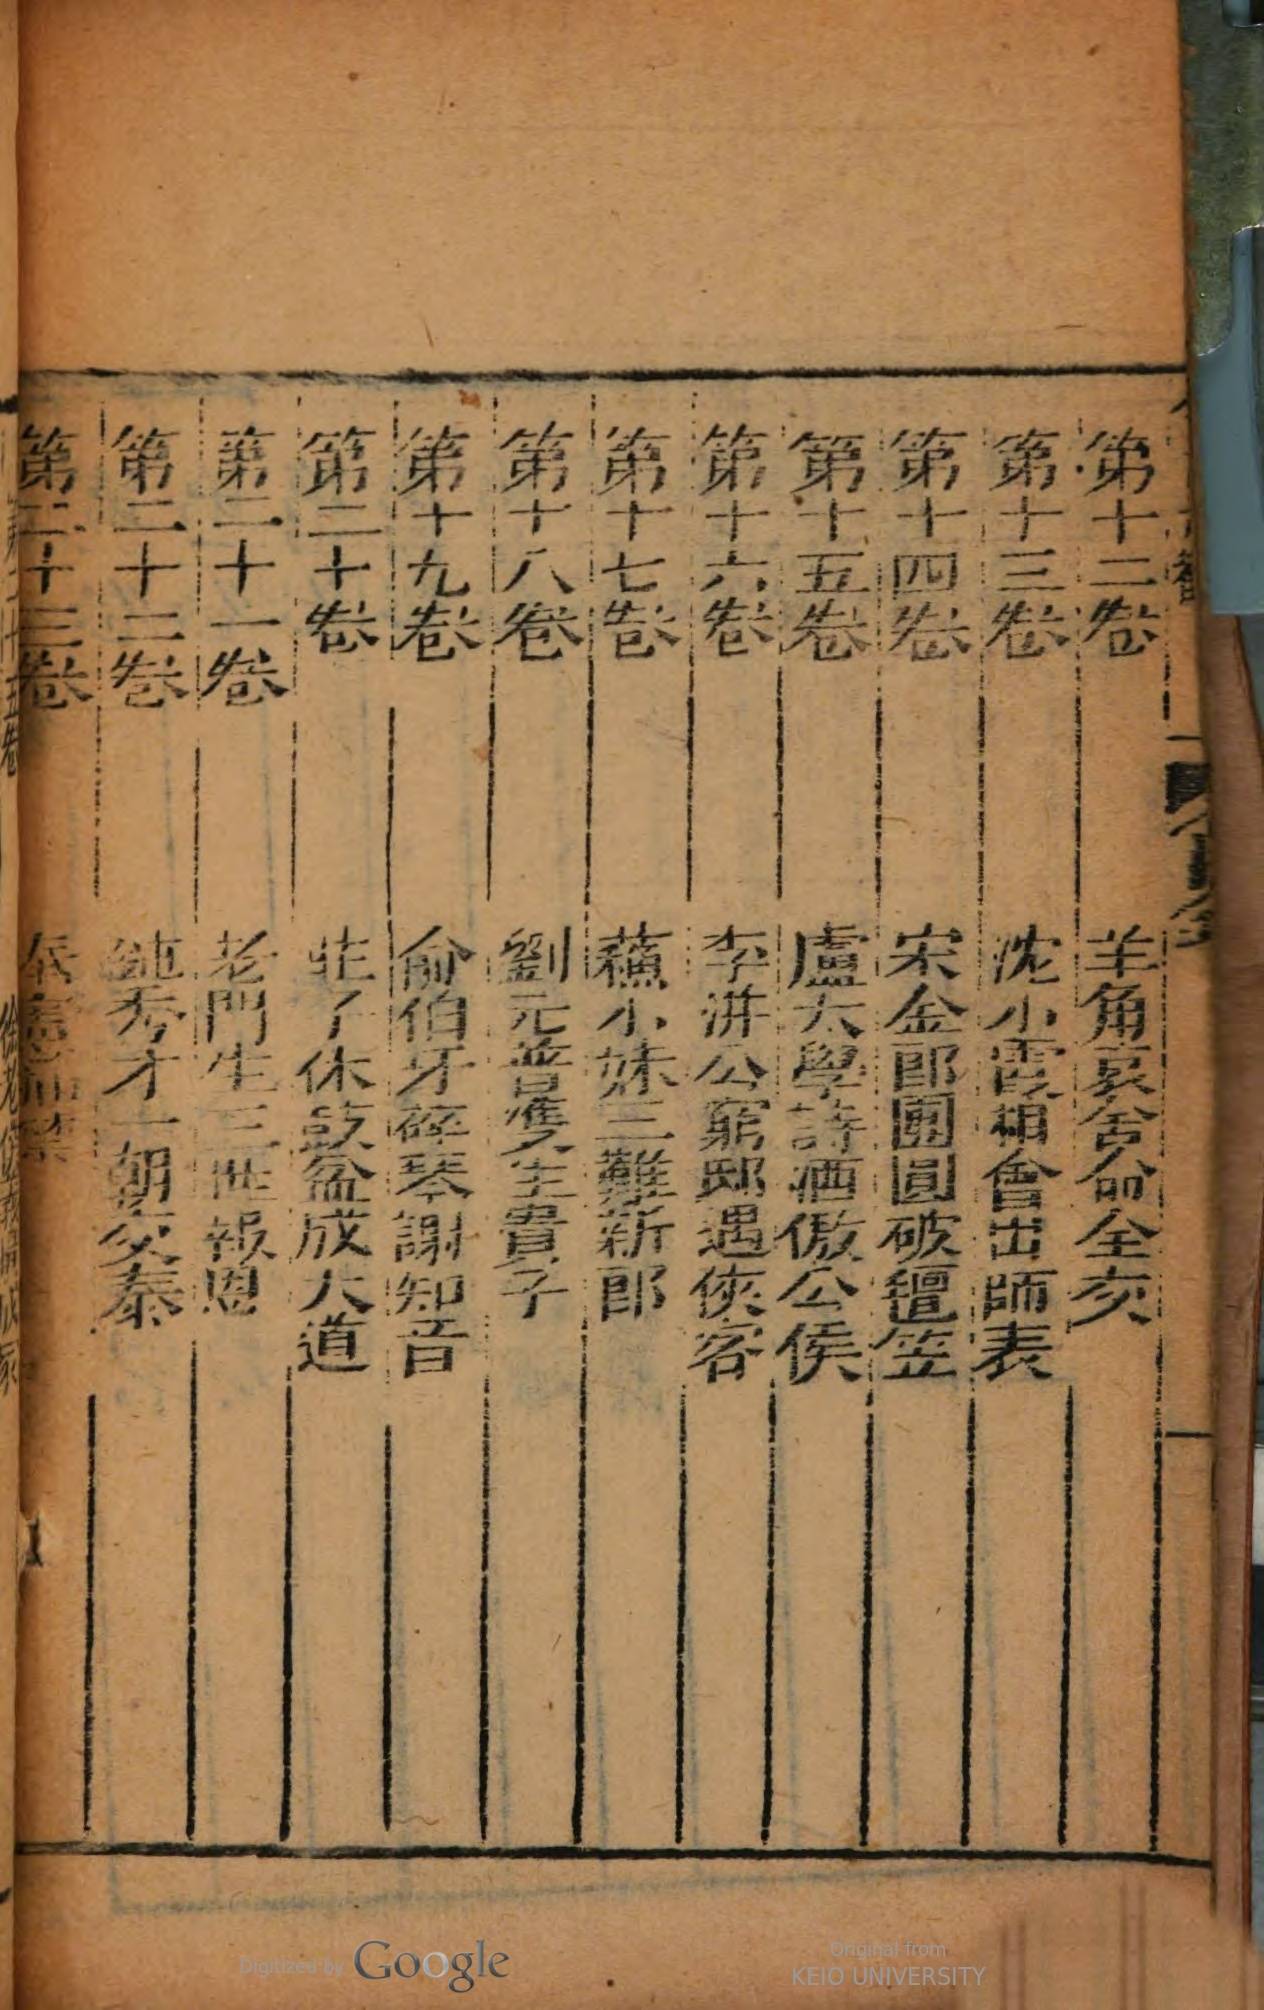 第十二卷 羊角哀舍命全交
第十三卷 沈小霞相會出師表
第十四卷 宋金郎團圓破氊笠
第十五卷 盧太學詩酒傲公侯
第十六卷 李汧公窮邸遇俠客
第十七卷 蘇小妹三難新郎
第十八卷 劉元普雙生貴子
第十九卷 俞伯牙碎琴謝知音
第二十卷 莊子休鼓盆成大道
第二十一卷 老門生三世報恩
第二十二卷 鈍秀才一朝交泰
第二十三卷
Digitized by Google
Original from
KEIO UNIVERSITY